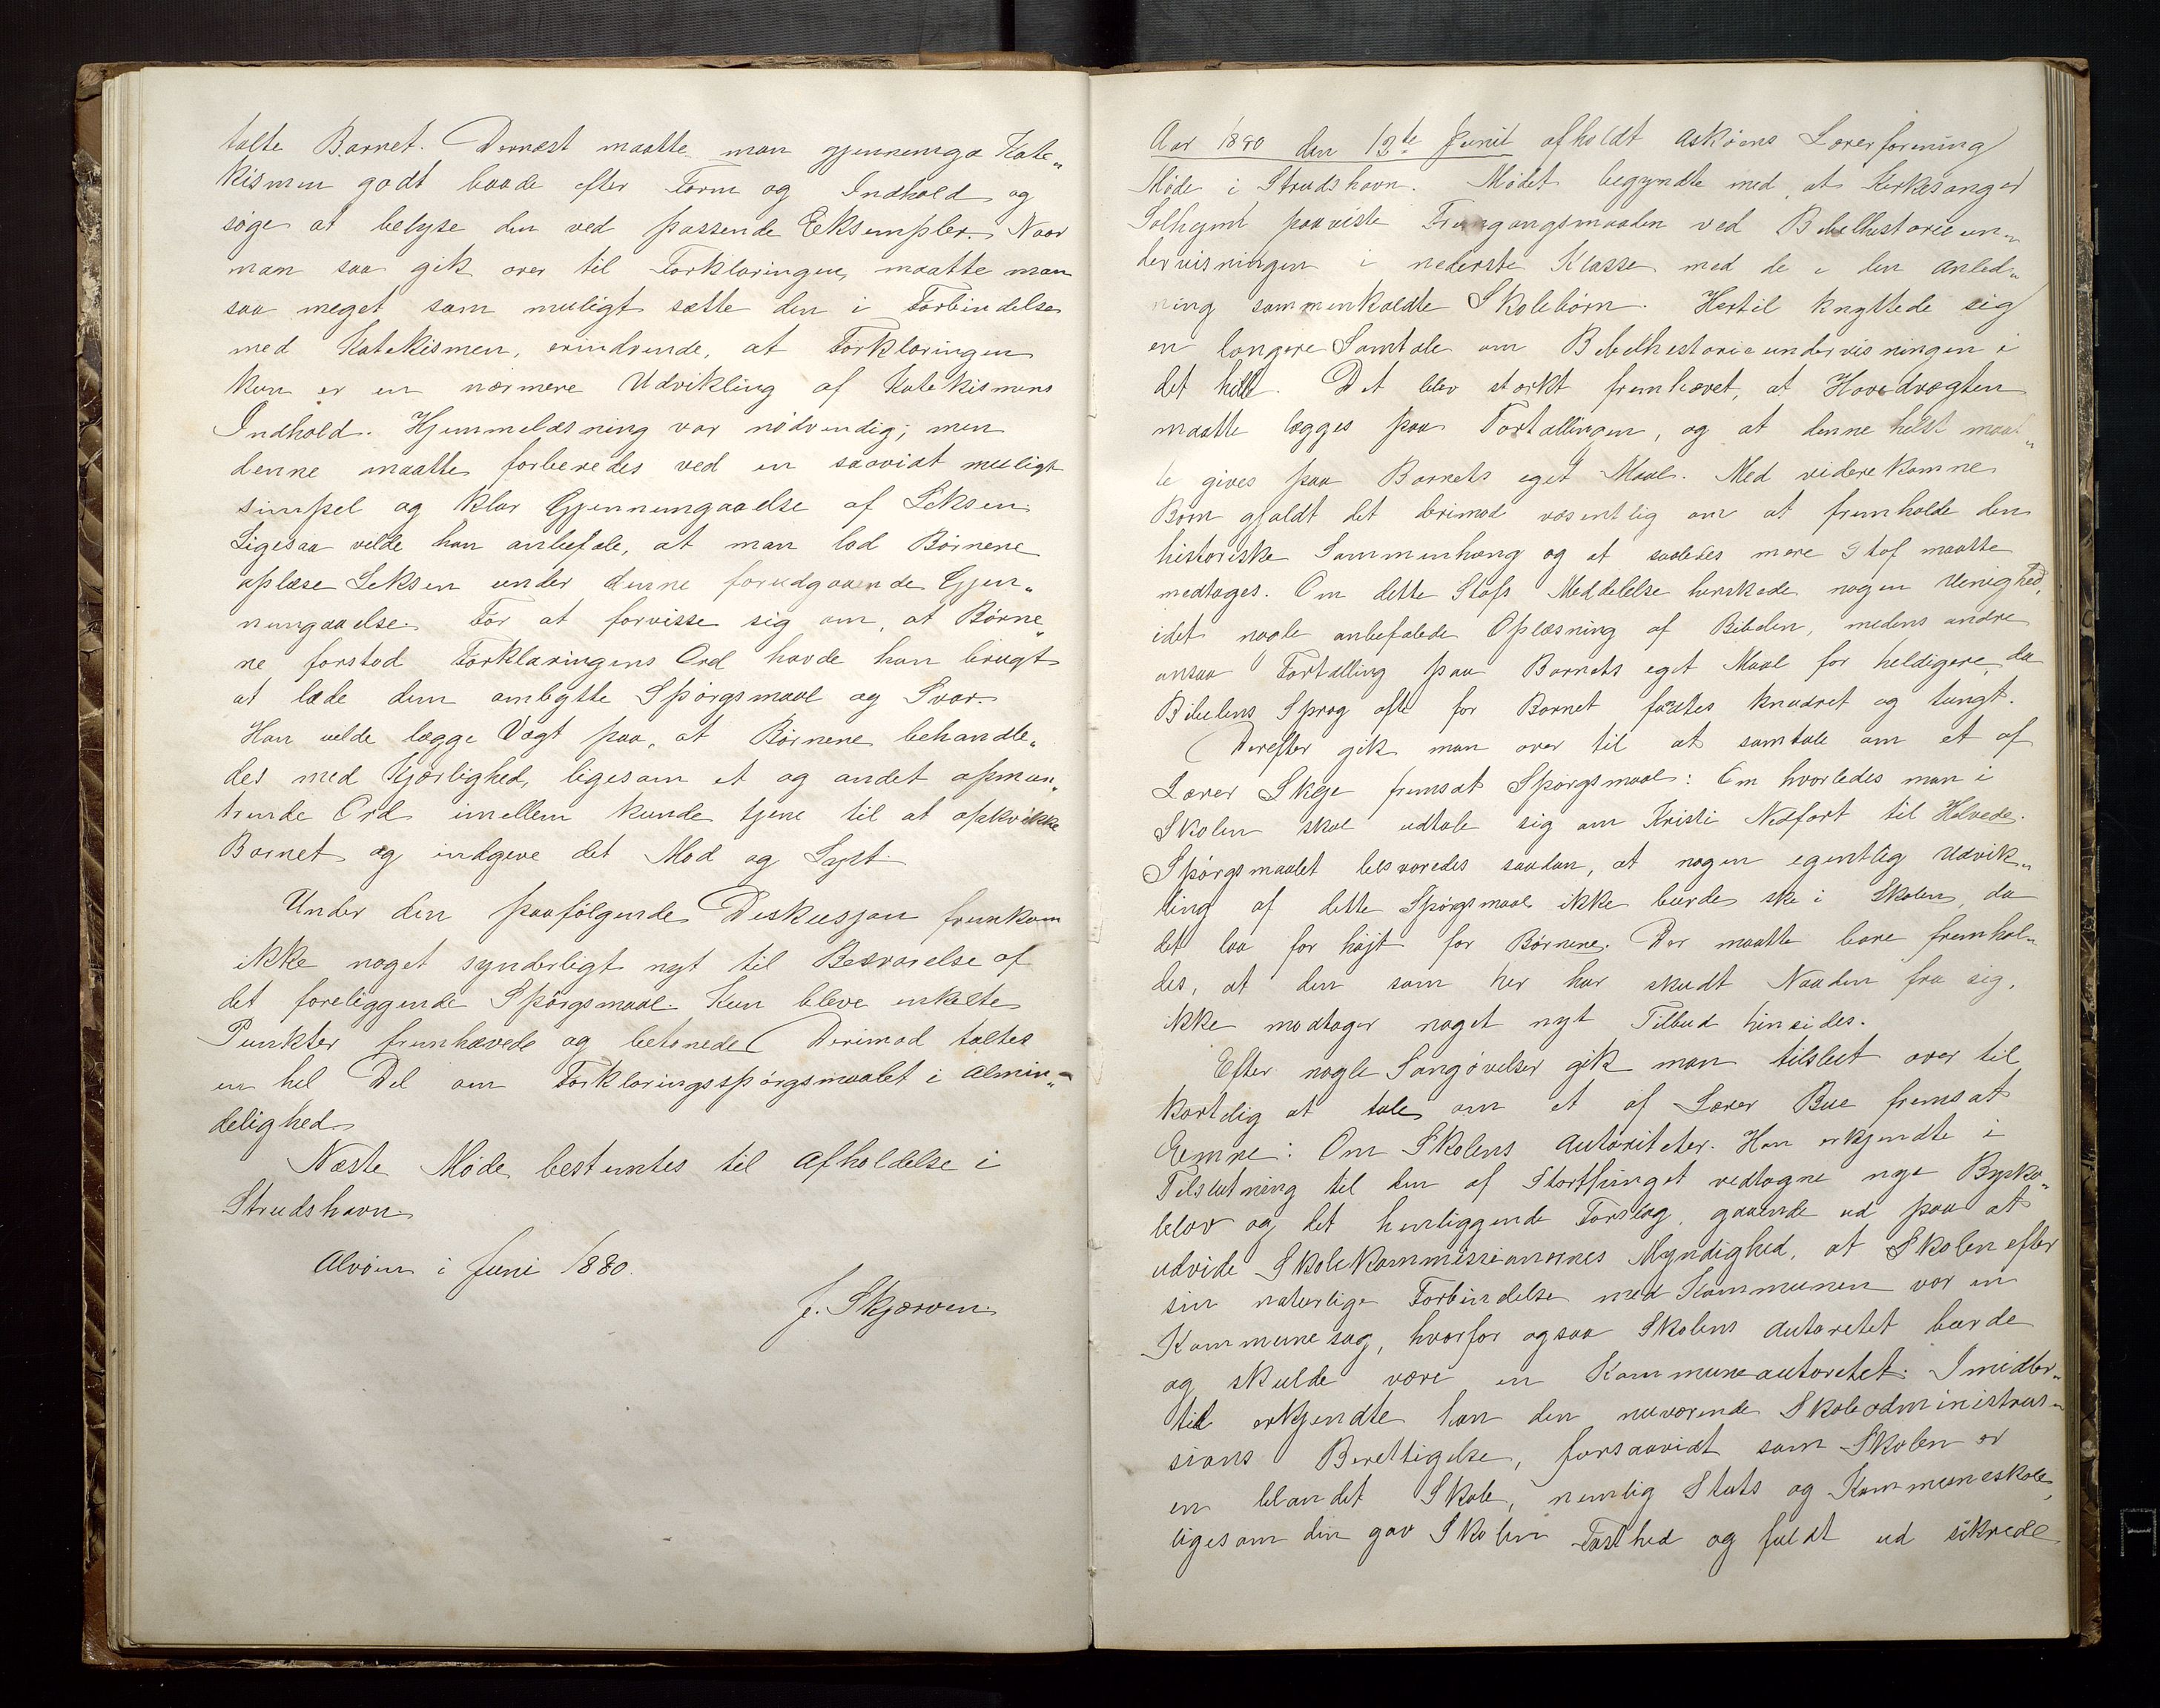 talte Barnet. Dernæst maatte man gjennemga Kate„
kismen godt baade efter Form og Indhold og
søge at belyse den ved passende Eksempler. Naar
man saa gik over til Forklaringen, maatte man
saa meget som muligt sætte den i Forbindelse
med Katekismen, erindrende, at Forklaringen
kun er en nærmere Udvikling af Katekismens
Indhold. Hjemmelæsning var nødvendig; men
denne maatte forberedes ved en saavidt muligt
simpel og klar Gjennemgaaelse af Leksen.
Ligesaa vilde han anbefale, at man lod Børnene
oplæse Leksen under denne forudgaaende Gjen„
nemgaaelse. For at forvisse sig om, at Børne„
ne forstod Forklaringens Ord havde han brugt
at lade dem ombytte Spørgsmaal og Svar.
Han vilde lægge Vægt paa, at Børnene behandle„
des med Kjærlighed, ligesom et og andet opmun„
trende Ord imellem kunde tjene til at opkvikke
Barnet og indgive det Mod og Lyst.
Under den paafølgende Diskusjon fremkom
ikke noget synderligt nyt til Besvarelse af
det foreliggende Spørgsmaal. Kun bleve enkelte
Punkter fremhævede og betonede. Derimod taltes
en hel Del om Forklaringsspørgsmaalet i Almin„
delighed.
Næste Møde bestemtes til Afholdelse i
Strudshavn.
Alvøen i Juni 1880.
J. Skjærven.
Aar 1880 den 12te Juni afholdt Askøens Lærerforening
Møde i Strudshavn. Mødet begyndte med, at Kirkesanger
Solheim paaviste Fremgangsmaaden ved Bibelhistorieun„
dervisningen i nederste Klasse med de i den Anled„
ning sammenkaldte Skolebørn. Hertil knyttede sig
en længere Samtale om Bibelhistorieundervisningen i
det hele. Det blev stærkt fremhævet, at Hovedvægten
maatte lægges paa Fortællingen, og at denne helst maat„
te gives paa Barnets eget Maal. Med viderekomne
Børn gjaldt det derimod væsentlig om at fremholde den
historiske Sammenhæng og at saaledes mere Stof maatte
medtages. Om dette Stofs Meddelelse herskede nogen Uenighed,
idet nogle anbefalede Oplæsning af Bibelen, medens andre
ansaa Fortælling paa Barnets eget Maal for heldigere, da
Bibelens Sprog ofte for Barnet faldtes knudret og tungt.
Derefter gik man over til at samtale om et af
Lærer Skeje fremsat Spørgsmaal: Om hvorledes man i
Skolen skal udtale sig om Kristi Nedfart til Helvede.
Spørgsmaalet besvaredes saadan, at nogen egentlig Udvik„
ling af dette Spørgsmaal ikke burde ske i Skolen, da
det laa for højt for Børnene. Der maatte bare fremhol„
des, at den som her har skudt Naaden fra sig,
ikke modtager noget nyt Tilbud hinsides.
Efter nogle Sangøvelser gik man tilslut over til
kortelig at tale om et af Lærer Bue fremsat
Emne: Om Skolens Autoriteter. Han erkjendte i
Tilslutning til den af Storthinget vedtagne nye Bysko„
lelov og det henliggende Forslag, gaaende ud paa at
udvide Skolekommissionernes Myndighed, at Skolen efter
sin naturlige Forbindelse med Kommunen var en
Kommunesag, hvorfor ogsaa Skolens Autoritet burde
og skulde være en Kommuneautoritet. Imidler„
tid erkjendte han den nuværende Skoleadministras„
sions Berettigelse, forsaavidt som Skolen er
en blandet Skole, nemlig Stats og Kommuneskole,
ligesom den gav Skolen Fasthed og fuldt ud sikrede